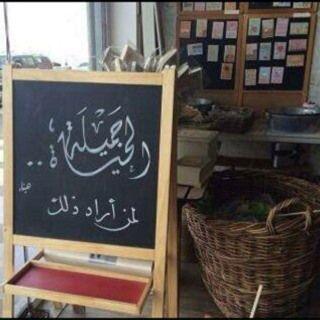 الحياة جميلة ..
لمن أراد ذلك